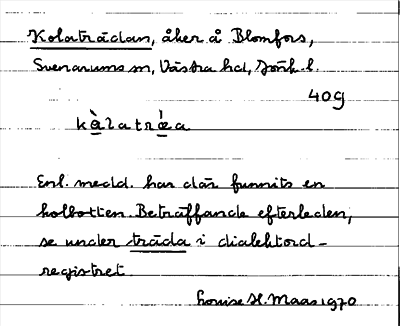 Kolaträdan, åker å Blomfors,
Svenarums sn, Västra hd, Jönk. l.
40g
kòlatræ̀a
Enl. medd. har där funnits en
kolbotten. Beträffande efterleden,
se under träda i dialektord-
registret.
Louise H. Maas 1970